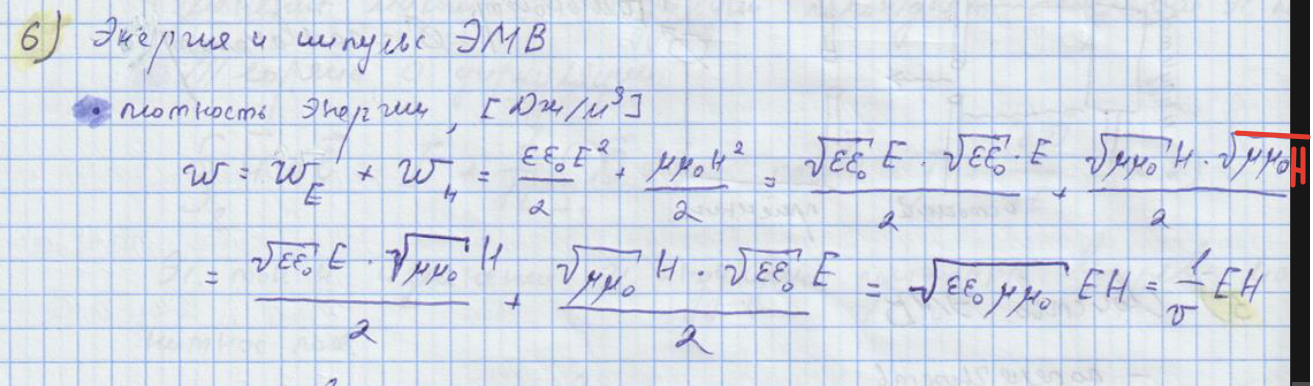 6) Энергия и импульс ЭМВ
• плотность энергии, [Дж/м³]
w = w_E + w_H = εε₀E²/2 + μμ₀H²/2 = √εε₀ E · √εε₀ · E/2 + √μμ₀ H · √μμ₀ H/2
= √εε₀ E · √μμ₀ H/2 + √μμ₀ H · √εε₀ E/2 = √εε₀μμ₀ EH = 1/v EH